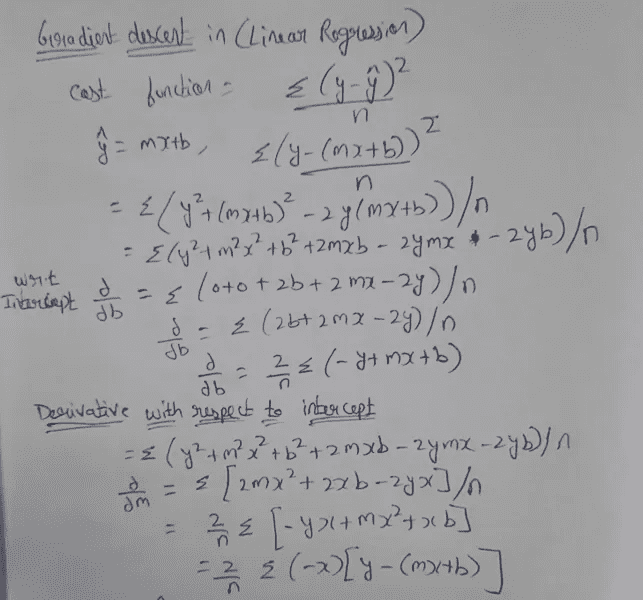 Gradient descent in (Linear Regression)
Cost function = Σ(y-ŷ)²/n
ŷ = mx+b, Σ(y-(mx+b))²/n
= Σ(y²+(mx+b)² - 2y(mx+b))/n
= Σ(y²+m²x²+b²+2mxb - 2ymx - 2yb)/n
w.r.t Intercept ∂/∂b = Σ(0+0+2b+2mx-2y)/n
∂/∂b = Σ(2b+2mx-2y)/n
∂/∂b = 2/n Σ(-y+mx+b)
Derivative with respect to intercept
= Σ(y²+m²x²+b²+2mxb-2ymx-2yb)/n
∂/∂m = Σ[2mx²+2xb-2yx]/n
= 2/n Σ[-yx+mx²+xb]
= 2/n Σ(-x)[y-(mx+b)]